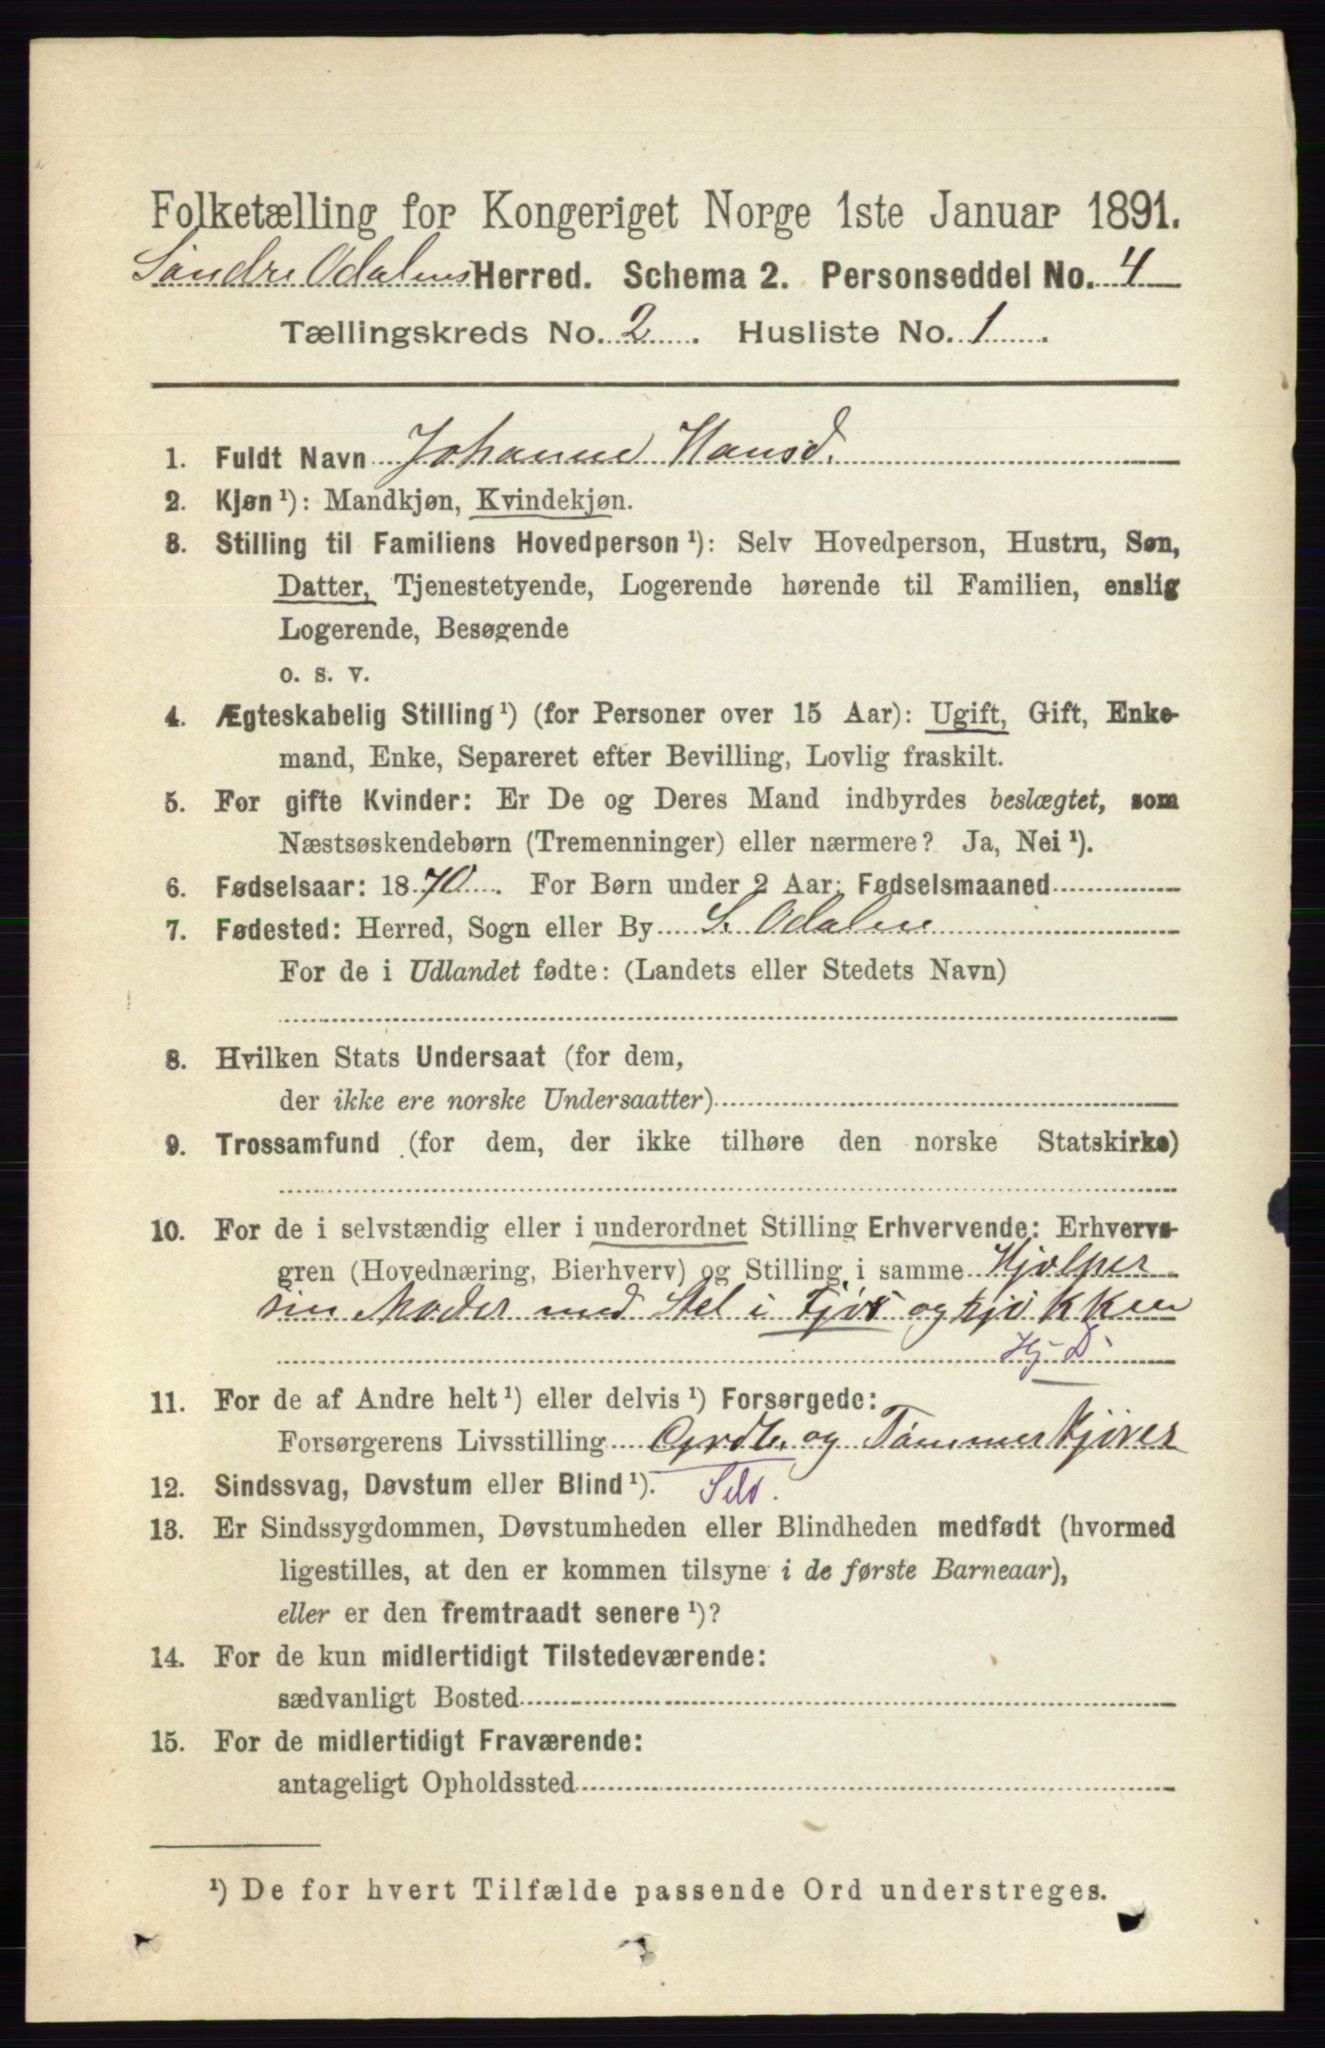 Folketælling for Kongeriget Norge 1ste Januar 1891.
Søndre Odalens Herred. Schema 2. Personseddel No. 4
Tællingskreds No. 2. Husliste No. 1.
1. Fuldt Navn Johanne Hansd.
2. Kjøn ¹): Mandkjøn, Kvindekjøn.
3. Stilling til Familiens Hovedperson ¹): Selv Hovedperson, Hustru, Søn,
Datter, Tjenestetyende, Logerende hørende til Familien, enslig
Logerende, Besøgende
o. s. v.
4. Ægteskabelig Stilling ¹) (for Personer over 15 Aar): Ugift, Gift, Enke-
mand, Enke, Separeret efter Bevilling, Lovlig fraskilt.
5. For gifte Kvinder: Er De og Deres Mand indbyrdes beslægtet, som
Næstsøskendebørn (Tremenninger) eller nærmere? Ja, Nei ¹).
6. Fødselsaar: 1870. For Børn under 2 Aar: Fødselsmaaned
7. Fødested: Herred, Sogn eller By S. Odalen
For de i Udlandet fødte: (Landets eller Stedets Navn)
8. Hvilken Stats Undersaat (for dem,
der ikke ere norske Undersaatter)
9. Trossamfund (for dem, der ikke tilhøre den norske Statskirke)
10. For de i selvstændig eller i underordnet Stilling Erhvervende: Erhvervs-
gren (Hovednæring, Bierhverv) og Stilling i samme Hjælper
sin Moder med Stel i Fjøs og kjøkken
Hj D
11. For de af Andre helt ¹) eller delvis ¹) Forsørgede:
Forsørgerens Livsstilling Grdb. og Tømmerkjører
12. Sindssvag, Døvstum eller Blind ¹). Selv.
13. Er Sindssygdommen, Døvstumheden eller Blindheden medfødt (hvormed
ligestilles, at den er kommen tilsyne i de første Barneaar),
eller er den fremtraadt senere ¹)?
14. For de kun midlertidigt Tilstedeværende:
sædvanligt Bosted
15. For de midlertidigt Fraværende:
antageligt Opholdssted
¹) De for hvert Tilfælde passende Ord understreges.